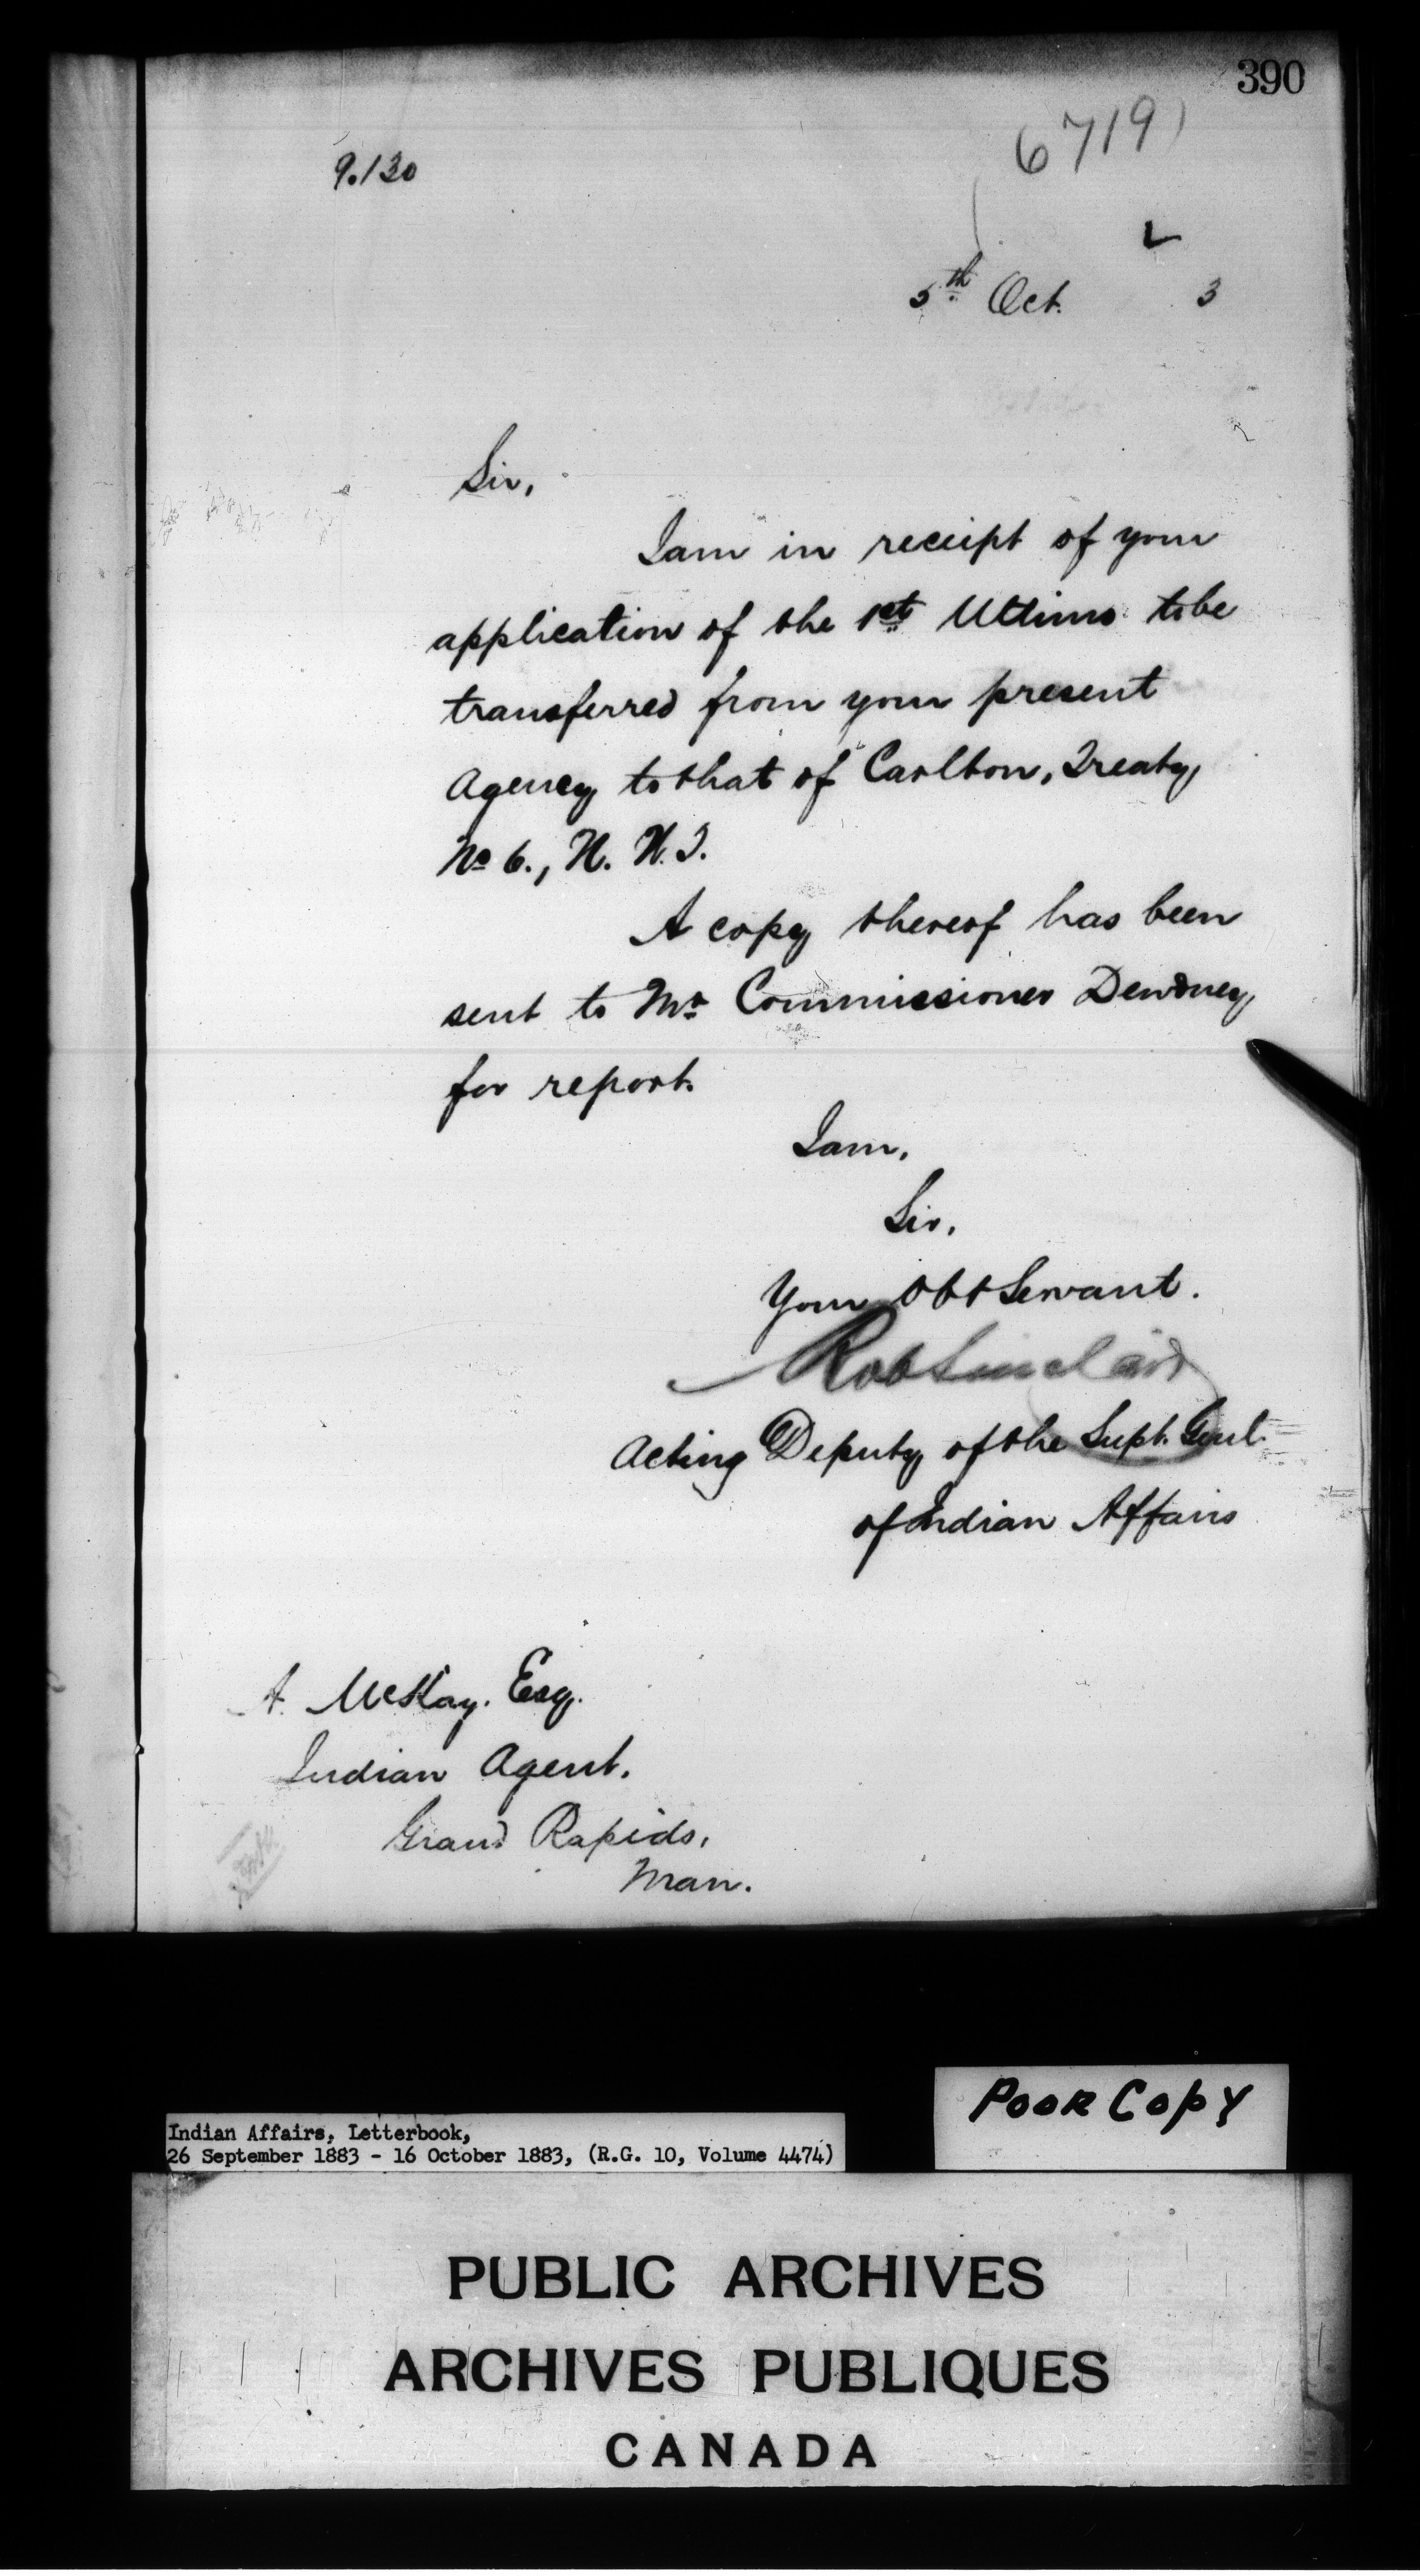 390
6719
9.130
5th Oct. 3
Sir,
I am in receipt of your
application of the 1st Ultimo to be
transferred from your present
Agency to that of Carlton, Treaty
No 6., N. W. T.
A copy thereof has been
sent to Mr Commissioner Dewdney,
for report.
I am,
Sir,
Your Obt Servant.
Rob Sinclair
Acting Deputy of the Supt. Genl.
of Indian Affairs
A. McKay. Esq.
Indian Agent.
Grand Rapids,
Man.
POOR COPY
Indian Affairs, Letterbook,
26 September 1883 - 16 October 1883, (R.G. 10, Volume 4474)
PUBLIC ARCHIVES
ARCHIVES PUBLIQUES
CANADA